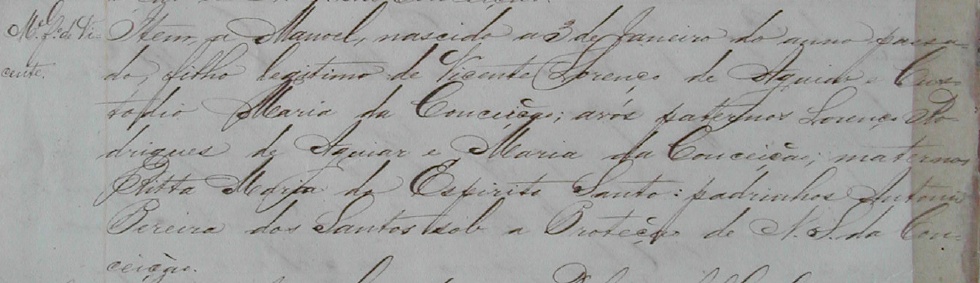 M.el f.o de Vi-
cente.
Item, a Manoel, nascido a 3 de Janeiro do anno passa-
do, filho legitimo de Vicente Lorenço de Aguiar e
Maria da Conceição; avós paternos Lorenço Ro-
drigues de Aguiar e Maria da Conceição; maternos
Ritta Maria do Espirito Santo: padrinhos Antonio
Pereira dos Santos sob a Proteção de N. S. da Con-
ceição.